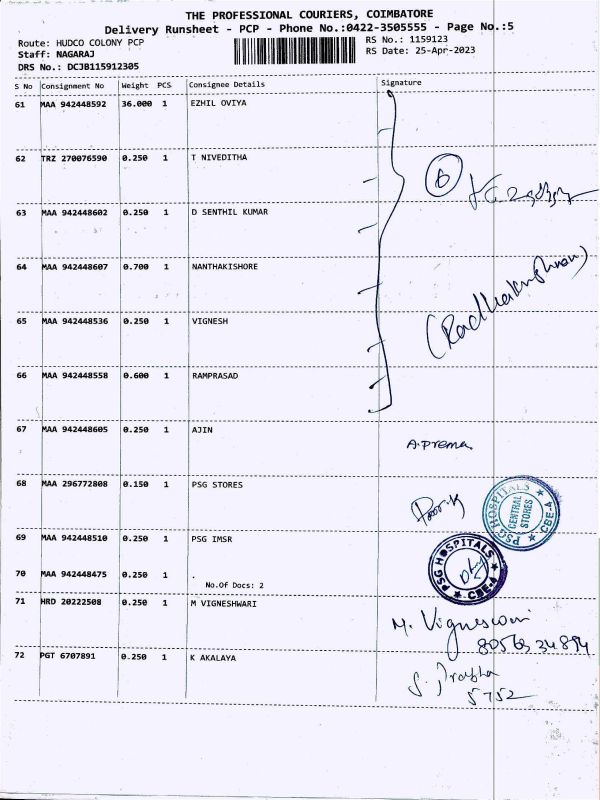 THE PROFESSIONAL COURIERS, COIMBATORE
Delivery Runsheet - PCP - Phone No.:0422-3505555 - Page No.:5
Route: HUDCO COLONY PCP
Staff: NAGARAJ
DRS No.: DCJB115912305
RS No.: 1159123
RS Date: 25-Apr-2023
S No Consignment No Weight PCS Consignee Details Signature
61 MAA 942448592 36.000 1 EZHIL OVIYA
62 TRZ 270076590 0.250 1 T NIVEDITHA
6
63 MAA 942448602 0.250 1 D SENTHIL KUMAR
64 MAA 942448607 0.700 1 NANTHAKISHORE
(Radhakrishnan)
65 MAA 942448536 0.250 1 VIGNESH
66 MAA 942448558 0.600 1 RAMPRASAD
67 MAA 942448605 0.250 1 AJIN
A.Prema
68 MAA 296772808 0.150 1 PSG STORES
PSG HOSPITALS CENTRAL STORES CBE-4
69 MAA 942448510 0.250 1 PSG IMSR
PSG HOSPITALS CBE-4
70 MAA 942448475 0.250 1 .
No.Of Docs: 2
71 HRD 20222508 0.250 1 M VIGNESHWARI
M. Vigneswari
8056334894
72 PGT 6707891 0.250 1 K AKALAYA
S. Prabha
5752